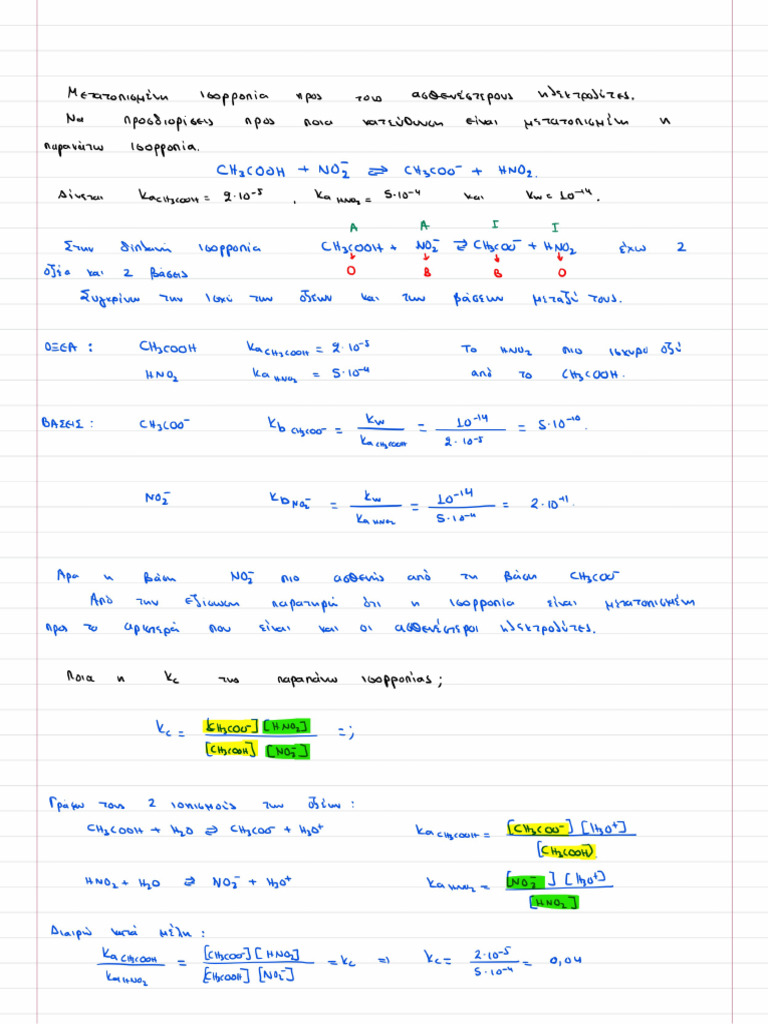 Μετατοπισμένη ισορροπία προς τους ασθενέστερους ηλεκτρολύτες.
Να προσδιορίσεις προς ποια κατεύθυνση είναι μετατοπισμένη η
παραπάτω ισορροπία.
CH₃COOH + NO₂⁻ ⇌ CH₃COO⁻ + HNO₂.
Δίνεται Ka CH₃COOH = 2·10⁻⁵ , Ka HNO₂ = 5·10⁻⁴ και Kw = 10⁻¹⁴.
A A I I
Στην διπλανή ισορροπία CH₃COOH + NO₂⁻ ⇌ CH₃COO⁻ + HNO₂ έχω 2
O B B O
οξέα και 2 βάσεις
Συγκρίνω την ισχύ των οξέων και των βάσεων μεταξύ τους.
ΟΞΕΑ : CH₃COOH Ka CH₃COOH = 2·10⁻⁵ Το HNO₂ πιο ισχυρό οξύ
HNO₂ Ka HNO₂ = 5·10⁻⁴ από το CH₃COOH.
ΒΑΣΕΙΣ : CH₃COO⁻ Kb CH₃COO⁻ = Kw / Ka CH₃COOH = 10⁻¹⁴ / 2·10⁻⁵ = 5·10⁻¹⁰.
NO₂⁻ Kb NO₂⁻ = Kw / Ka HNO₂ = 10⁻¹⁴ / 5·10⁻⁴ = 2·10⁻¹¹.
Άρα η βάση NO₂⁻ πιο ασθενής από τη βάση CH₃COO⁻
Από την εξίσωση παρατηρώ ότι η ισορροπία είναι μετατοπισμένη
προς το αριστερά που είναι και οι ασθενέστεροι ηλεκτρολύτες.
Ποια η Kc της παραπάνω ισορροπίας ;
Kc = [CH₃COO⁻][HNO₂] / [CH₃COOH][NO₂⁻] = ;
Γράφω τους 2 ιοντισμούς των οξέων :
CH₃COOH + H₂O ⇌ CH₃COO⁻ + H₃O⁺ Ka CH₃COOH = [CH₃COO⁻][H₃O⁺] / [CH₃COOH].
HNO₂ + H₂O ⇌ NO₂⁻ + H₃O⁺ Ka HNO₂ = [NO₂⁻][H₃O⁺] / [HNO₂]
Διαιρώ κατά μέλη :
Ka CH₃COOH / Ka HNO₂ = [CH₃COO⁻][HNO₂] / [CH₃COOH][NO₂⁻] = Kc ⇒ Kc = 2·10⁻⁵ / 5·10⁻⁴ = 0,04